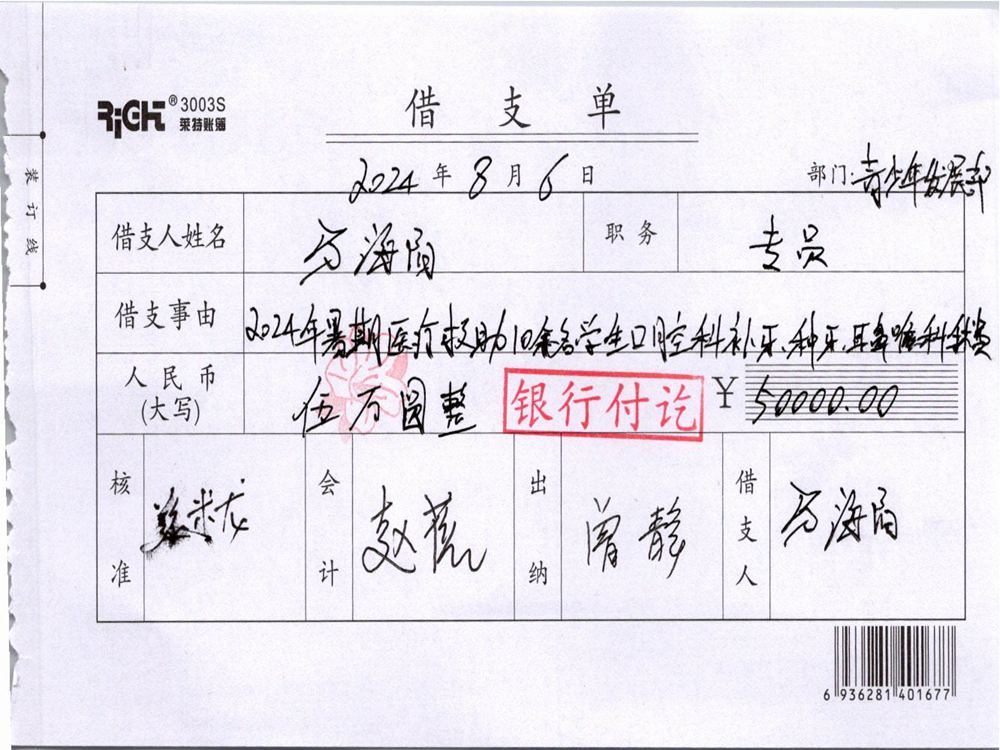 RiGHT® 3003S
莱特账簿
借支单
2024年8月6日
部门:青少年发展部
装订线
借支人姓名 马海
职务 专员
借支事由 2024年暑期医疗救助10余名学生口腔科补牙、种牙、耳鼻喉科
人民币(大写) 伍万圆整
银行付讫
¥50000.00
核准 米龙
会计 赵
出纳 曾静
借支人 马海
6 936281 401677